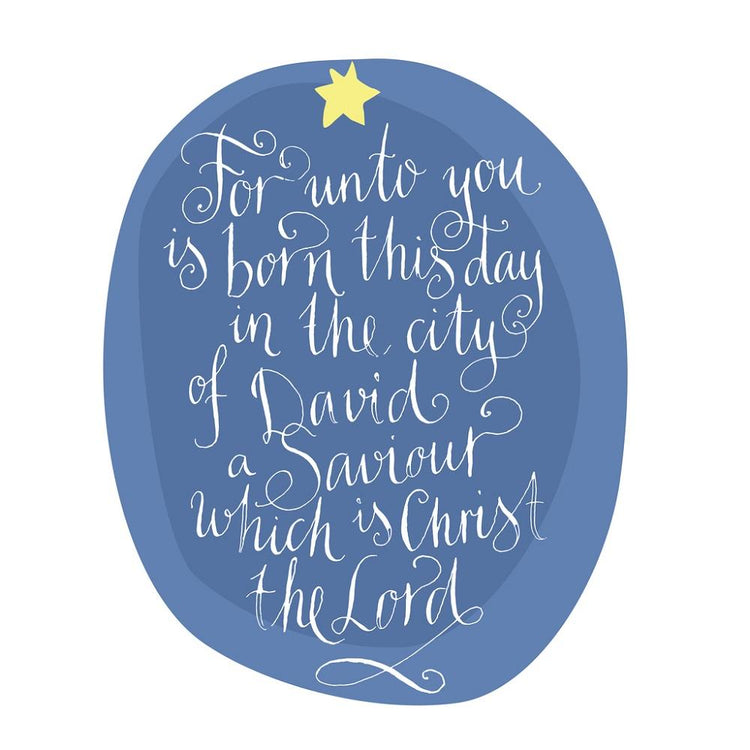 For unto you
is born this day
in the city
of David
a Saviour
which is Christ
the Lord